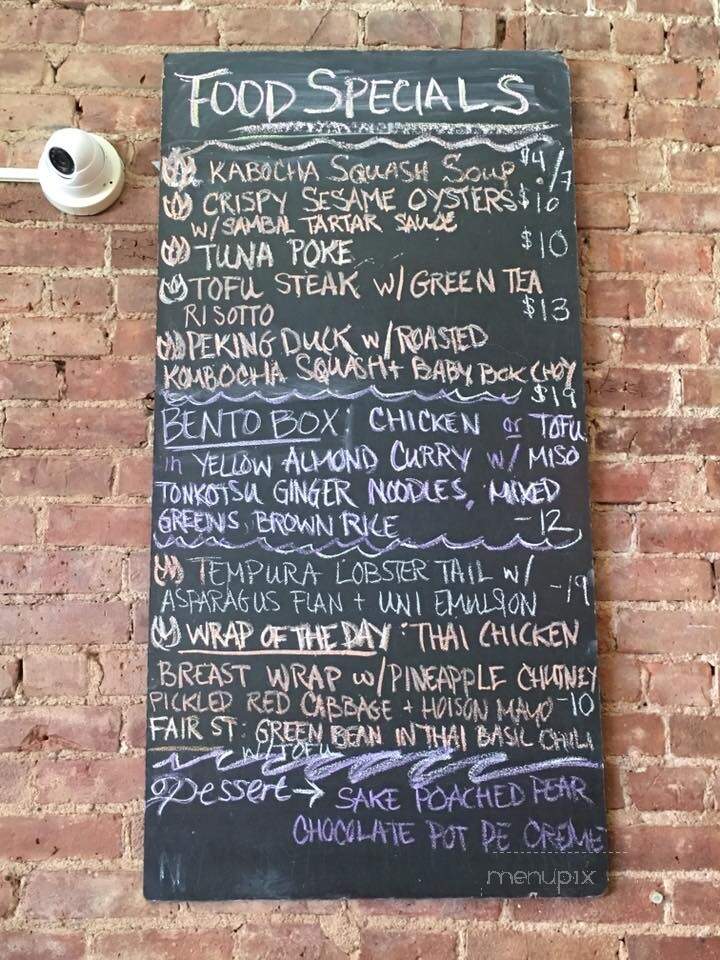 FOOD SPECIALS
KABOCHA SQUASH SOUP $4/7
CRISPY SESAME OYSTERS $10
W/SAMBAL TARTAR SAUCE
TUNA POKE $10
TOFU STEAK W/GREEN TEA
RISOTTO $13
PEKING DUCK W/ROASTED
KOMBOCHA SQUASH + BABY BOK CHOY
$19
BENTO BOX: CHICKEN or TOFU
in YELLOW ALMOND CURRY W/ MISO
TONKOTSU GINGER NOODLES, MIXED
GREENS, BROWN RICE -12
TEMPURA LOBSTER TAIL W/
ASPARAGUS FLAN + UNI EMULSION -19
WRAP OF THE DAY: THAI CHICKEN
BREAST WRAP W/PINEAPPLE CHUTNEY
PICKLED RED CABBAGE + HOISON MAYO -10
FAIR ST: GREEN BEAN IN THAI BASIL CHILI
W/TOFU
Dessert → SAKE POACHED PEAR
CHOCOLATE POT DE CREME
menupix